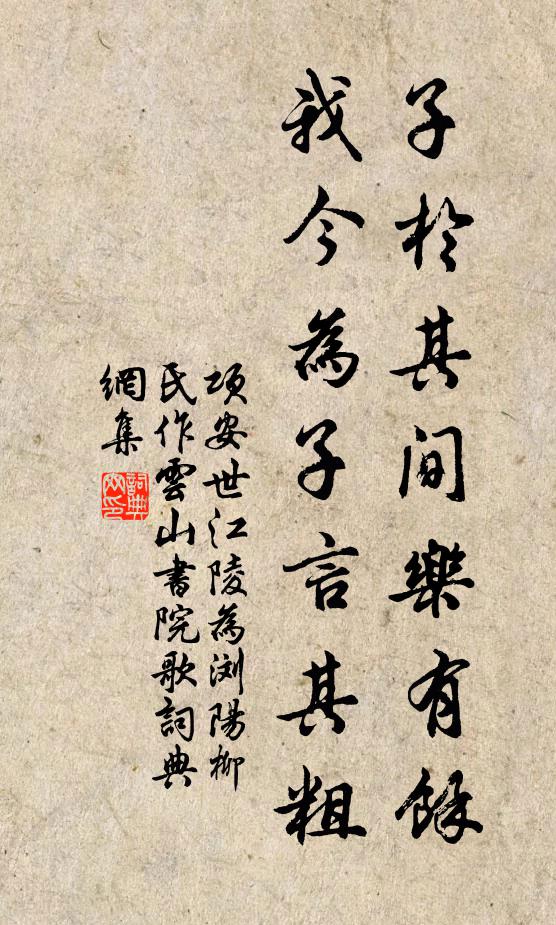 子於其间樂有餘
我今為子言其粗
項安世江陵為浏陽柳
民作雲山書院歌詞典
網集
詞典
网印